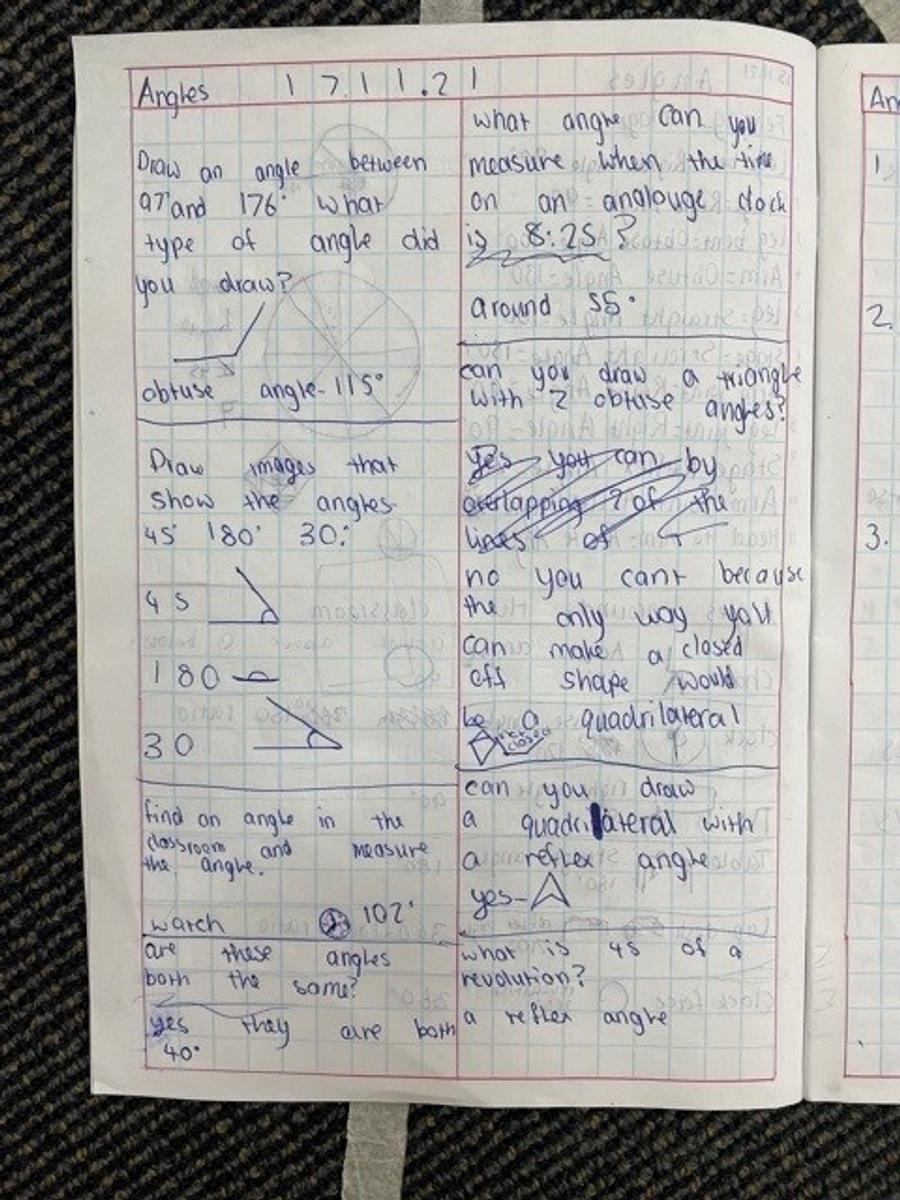 Angles 17.11.21
Draw an angle between
97° and 176° what
type of angle did
you draw?
obtuse angle - 115°
Draw images that
show the angles
45° 180° 30°
45
180
30
find an angle in the
classroom and measure
the angle.
watch 102°
are these angles
both the same?
yes they are both
40°
what angle can you
measure when the time
on an analouge clock
is 8:25?
around 55°
can you draw a triangle
with 2 obtuse angles?
yes you can by
overlapping 2 of the
lines of
no you cant because
the only way you
can make a closed
off shape would
be a quadrilateral
not closed
can you draw
a quadrilateral with
a reflex angle
yes-
what is 45 of a
revolution?
a reflex angle
An
1
2.
3.